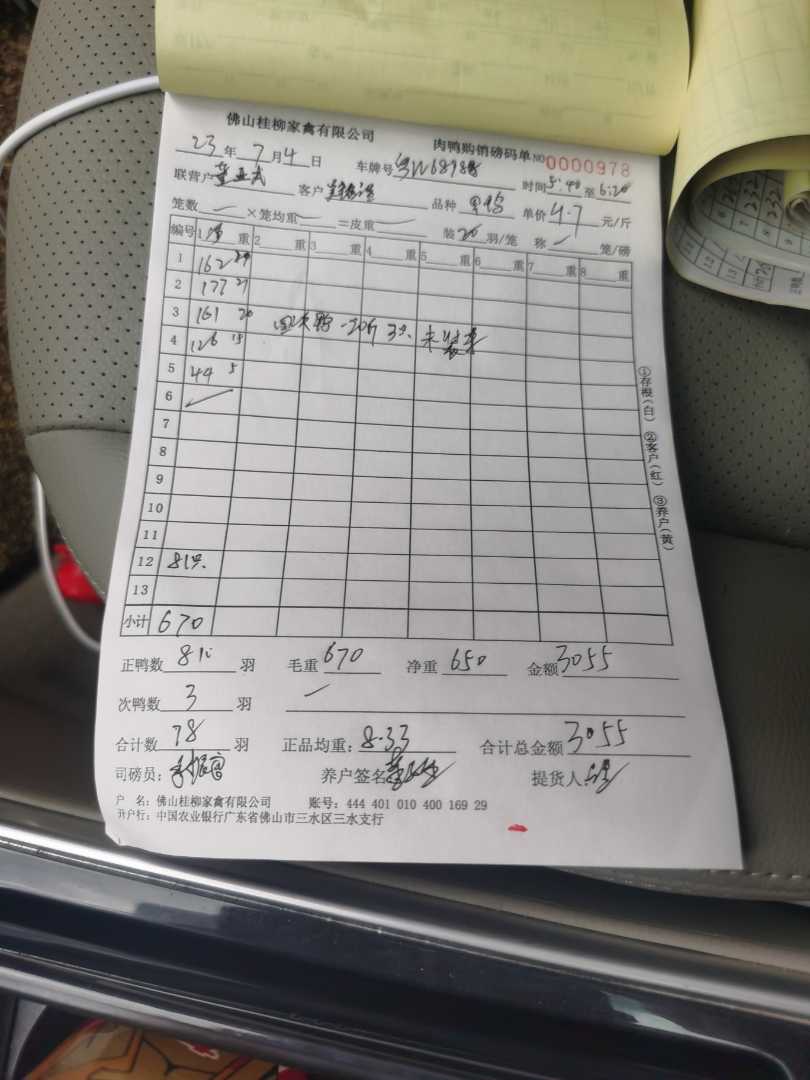 佛山桂柳家禽有限公司 肉鸭购销磅码单 NO 0000978
23 年 7 月 4 日 车牌号 时间 5:40 至 6:20
联营户 客户 品种 单价 4.7 元/斤
笼数 ×笼均重 =皮重 装 20 羽/笼 称 笼/磅
编号 1 重 2 重 3 重 4 重 5 重 6 重 7 重 8 重
1 162
2 177
3 161 20 次鸭-20斤 3只 未装车
4 126 15
5 44 5
6
7
8
9
10
11
12 81只
13
小计 670
正鸭数 81 羽 毛重 670 净重 650 金额 3055
次鸭数 3 羽
合计数 78 羽 正品均重: 8.33 合计总金额 3055
司磅员: 养户签名 提货人
户 名: 佛山桂柳家禽有限公司 账号: 444 401 010 400 169 29
开户行: 中国农业银行广东省佛山市三水区三水支行
①存根(白) ②客户(红) ③养户(黄)